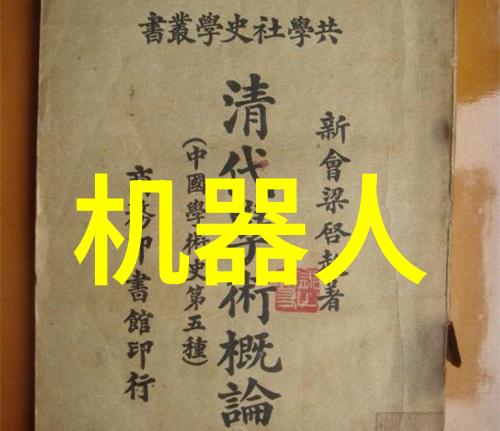 共學社史學叢書
新會梁啓超著
清代學術概論
(中國學術史第五種)
商務印書館印行
机器人